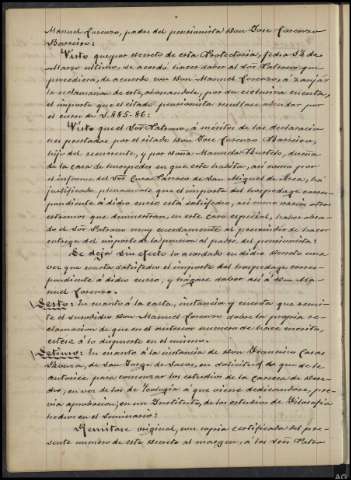 Manuel Lorenzo, padre del pensionista Don Jose Lorenzo
Barreiro:
Visto que por decreto de esta Protectoria, fecha 12 de
Marzo último, se acordó hacer saber al Sor Patrono que
procediera, de acuerdo con Don Manuel Lorenzo, á zanjar
la reclamación de este, abonandole, por su exclusiva cuenta,
el importe que el citado pensionista resultase adeudar por
el curso de 1.885-86:
Visto que el Sor Patrono, á méritos de las declaracio-
nes prestadas por el citado Don Jose Lorenzo Barreiro,
hijo del recurrente, y por Doña Manuela Bustelo, dueña
de la casa de huéspedes en que este habitó, así como por
el informe del Sor Cura Párroco de San Miguel de Arca, ha
justificado plenamente que el importe del hospedage corres-
pondiente á dicho curso está satisfecho, así como varios otros
estremos que demuestran, en este caso especial, haber obra-
do el Sor Patrono muy cuerdamente al prescindir de hacer
entrega del importe de la pension al padre del pensionista:
Se deja sin efecto lo acordado en dicho Decreto una
vez que consta satisfecho el importe del hospedage corres-
pondiente á dicho curso, y hágase saber así á Don Ma-
nuel Lorenzo:
Sesto: En cuanto á la carta, instancia y cuenta que remi-
te el susodicho Don Manuel Lorenzo sobre la propia re-
clamacion de que en el anterior número se hace mérito,
estese á lo dispuesto en el mismo:
Setimo: En cuanto á la instancia de Don Francisco Casas
de San Jorge de Sacos, en solicitud de que se le
autorice para comenzar los estudios de la Carrera de Dere-
cho, en vez de los de Teología á que viene dedicandose, pré-
via aprobacion, en un Instituto, de los estudios de Filosofía
hechos en el Seminario:
Remitase original, con copia certificada del pre-
sente número de este decreto al margen, á los Sres Patro-